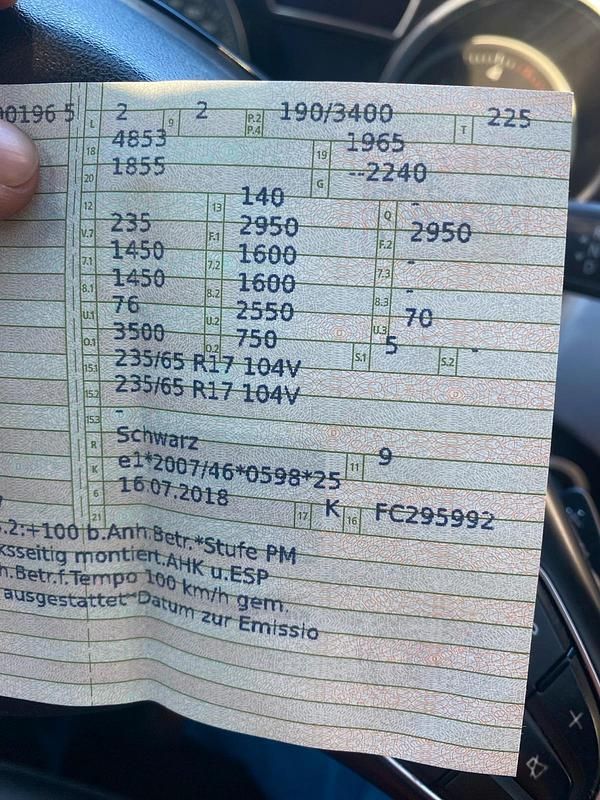 00196 5 L 2 9 2 P.2 P.4 190/3400 T 225
18 4853 19 1965
20 1855 G --2240
12 13 140 Q -
V.7 235 F.1 2950 F.2 2950
7.1 1450 7.2 1600 7.3 -
8.1 1450 8.2 1600 8.3 -
U.1 76 U.2 2550 U.3 70
O.1 3500 O.2 750 S.1 5 S.2 -
15.1 235/65 R17 104V
15.2 235/65 R17 104V
15.3 -
R Schwarz 11 9
K e1*2007/46*0598*25
6 16.07.2018 17 K 16 FC295992
21
.2:+100 b.Anh.Betr.*Stufe PM
ksseitig montiert.AHK u.ESP
h.Betr.f.Tempo 100 km/h gem.
ausgestattet*Datum zur Emissio